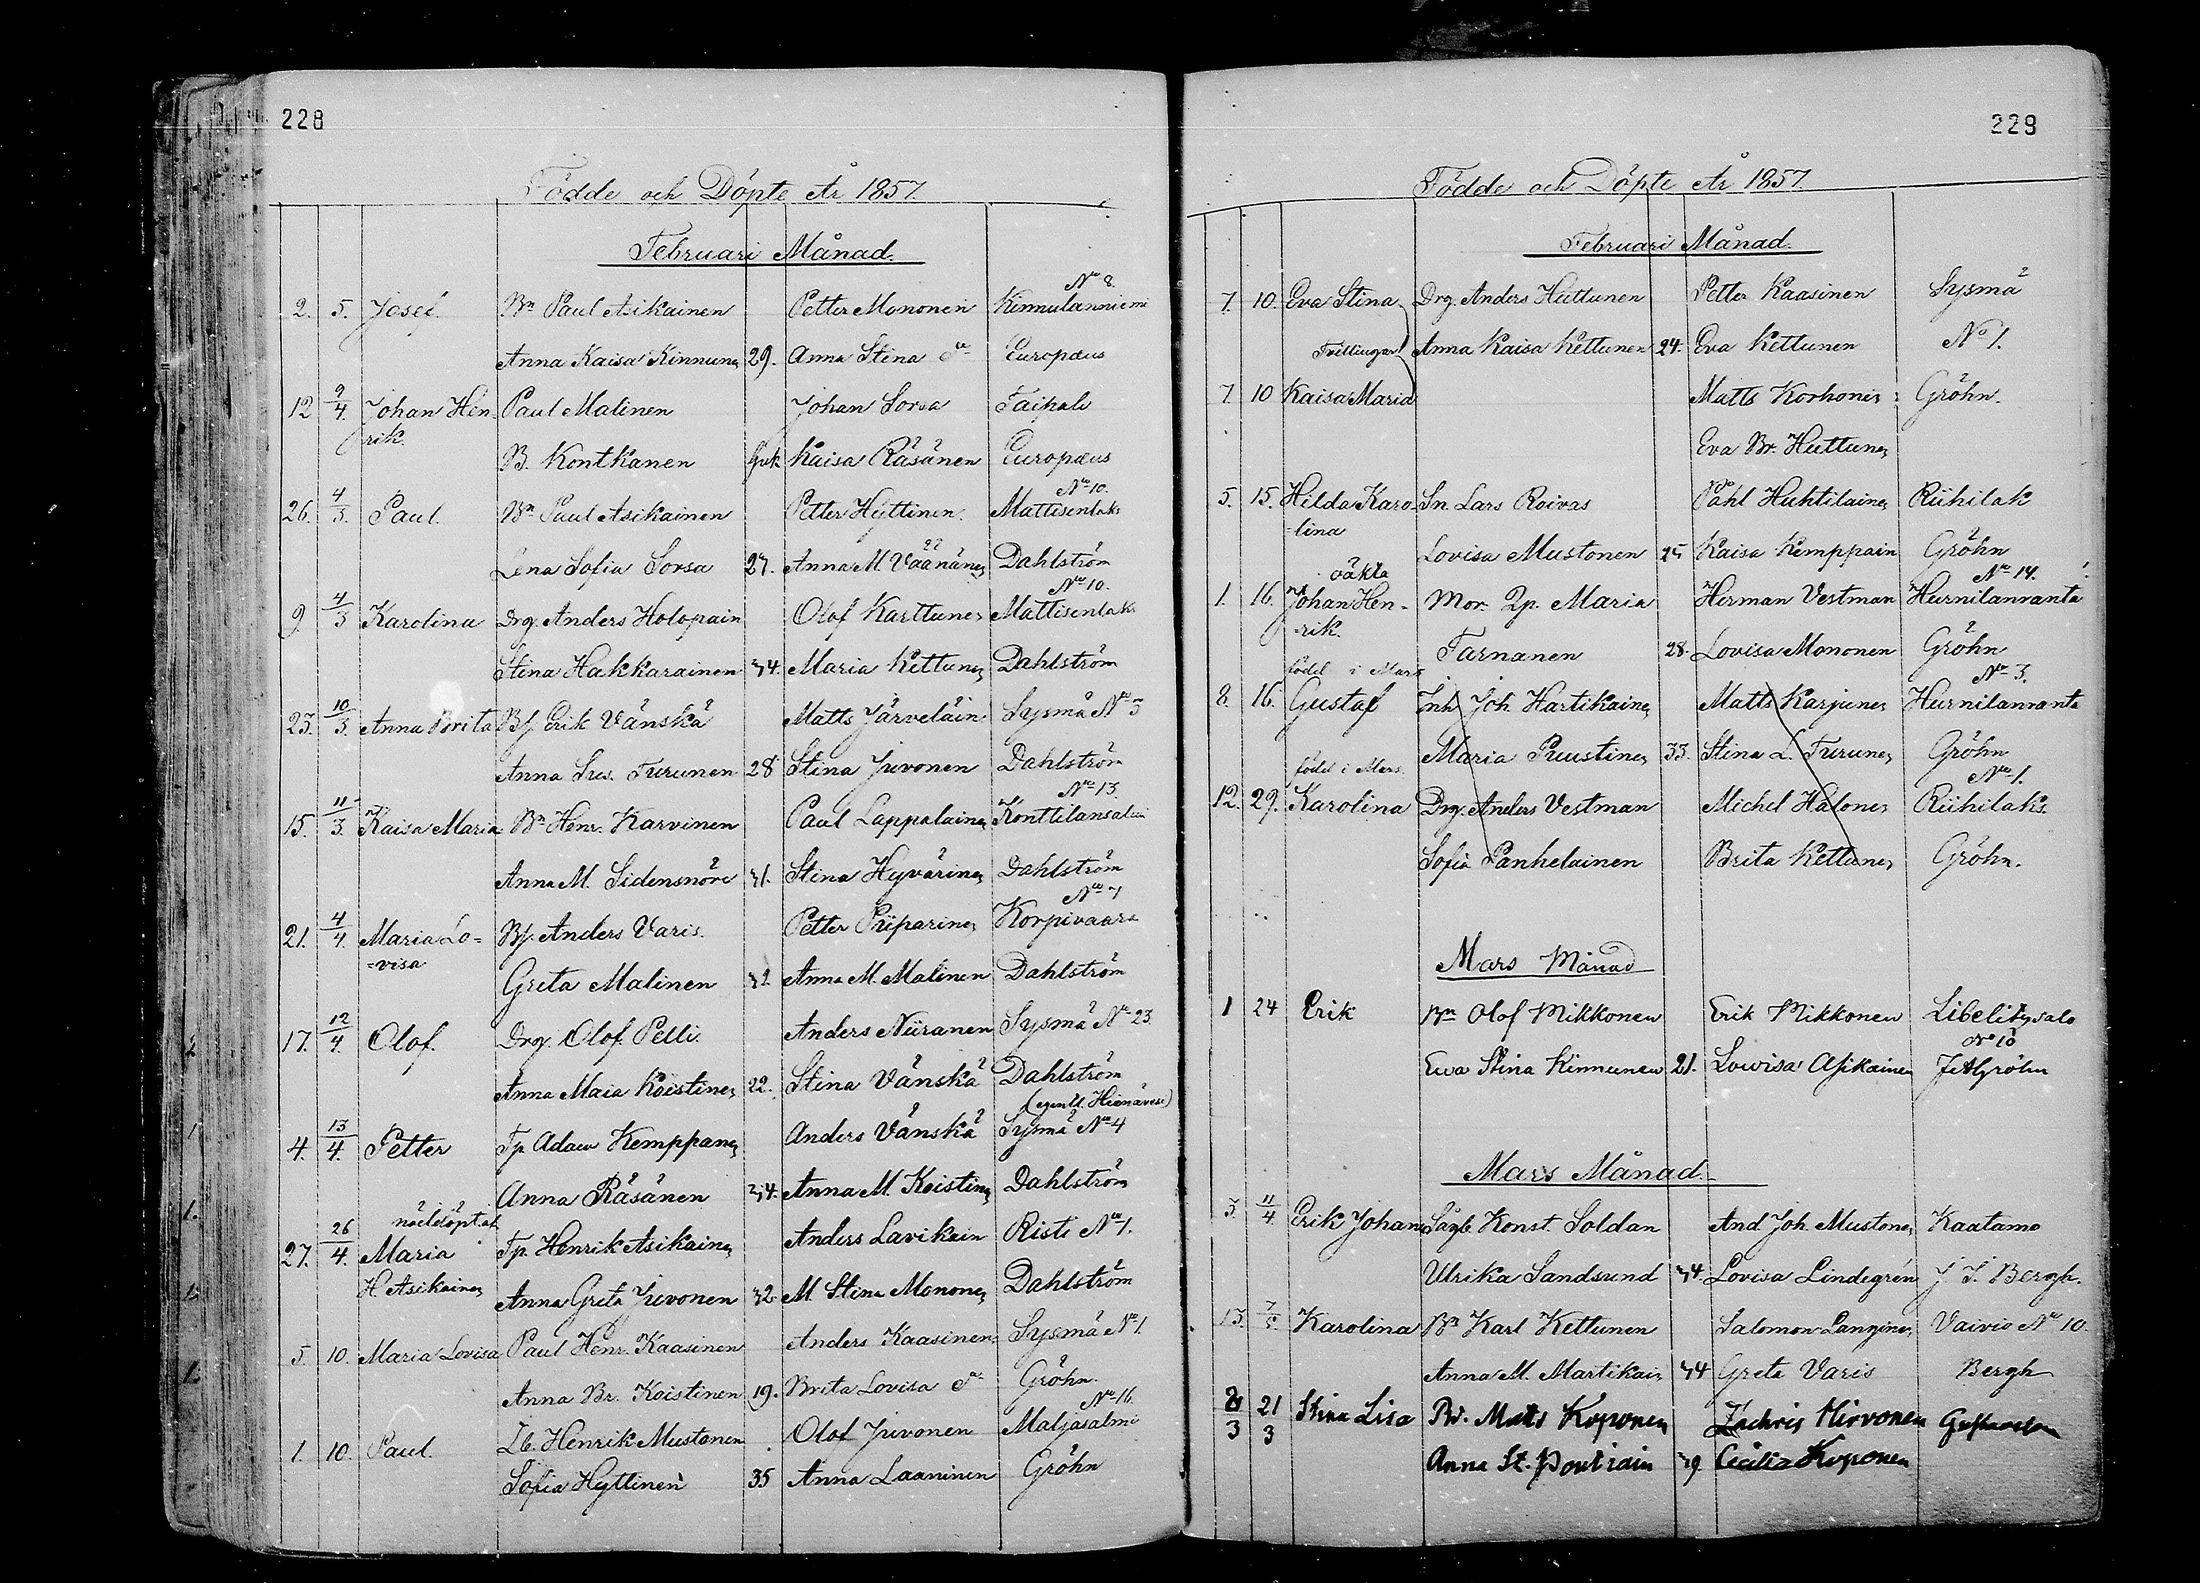 228
Födde och Döpte År 1857.
Februari Månad.
2. 5. Josef. Bn Paul Asikainen Petter Mononen Kinnulanniemi No 8.
Anna Kaisa Kinnunen 29. Anna Stina Europæus
12 9/4. Johan Hen- Paul Malinen Johan Sorsa Taipale
rik.
B. Kontkanen Kaisa Räsänen Europæus
26. 4/3. Paul. Bn Paul Asikainen Petter Hyttinen. Mattisenlaks No 10.
Lena Sofia Sorsa 27. Anna M. Väänänen Dahlström
9. 4/3 Karolina Drg. Anders Holopain Olof Karttunen Mattisenlaks No 10.
Stina Hakkarainen 34. Maria Kettunen Dahlström
23. 10/3. Anna Brita Bf. Erik Vänskä Matts Järveläin Sysmä No 3
Anna Sus. Turunen 28 Stina Juvonen Dahlström
15. 11/3. Kaisa Maria Bn Henr. Karvinen Paul Lappalainen Konttilansalmi No 13.
Anna M. Sidensnöre 31. Stina Hyvärinen Dahlström
21. 4/4. Maria Lo= Bf. Anders Varis. Petter Piiparinen Korpivaara No 7
=visa
Greta Malinen 32 Anna M. Malinen Dahlström
17. 12/4. Olof. Drg. Olof Pelli. Anders Niiranen Sysmä No 23.
Anna Maia Koistinen 22. Stina Vänskä Dahlström
4. 13/4. Petter Tp Adam Kemppanen Anders Vänskä Sysmä No 4 (egentl. Heinävesi)
Anna Räsänen 34. Anna M. Koistinen Dahlström
nöddöpt af
27. 26/4. Maria Tp. Henrik Asikainen Anders Lavikain Riste No 1.
H Asikainen
Anna Greta Juvonen 32 M. Stina Mononen Dahlström
5. 10. Maria Lovisa Paul Henr. Kaasinen Anders Kaasinen Sysmä No 1.
Anna Br. Koistinen 19. Brita Lovisa Gröhn.
1. 10. Paul. Lb. Henrik Mustonen Olof Juvonen Maljasalmi No 16.
Sofia Hyttinen 35 Anna Laaninen Gröhn
229
Födde och Döpte År 1857.
Februari Månad.
7. 10. Eva Stina Drg. Anders Huttunen Petter Kaasinen Sysmä
Tvillingar Anna Kaisa Kettunen 24. Eva Kettunen No 1.
7. 10 Kaisa Maria Matts Korhonen Gröhn.
Eva Br. Huttunen
5. 15. Hilda Karo- Sn. Lars Roivas Påhl Huhtilainen Riihilak
=lina
Lovisa Mustonen 25 Kaisa Kemppain Gröhn
oäkta
1. 16. Johan Hen- Mor. Qp. Maria Herman Vestman Hurnilanranta No 14.
-rik.
Tarnanen 28. Lovisa Mononen Gröhn
född i Mars
8. 16. Gustaf Inh Joh. Hartikainen Matts Karjunen Hurnilanranta No 3.
Maria Puustinen 33. Stina L. Turunen Gröhn
född i Mars.
12. 29. Karolina Drg. Anders Vestman Michel Halonen Riihilaks. No 1.
Sofia Panhelainen Brita Kettunen Gröhn.
Mars Månad
1 24 Erik Bn Olof Mikkonen Erik Mikkonen Libelitzsalo
No 10
Ewa Stina Kinnunen 21. Lowisa Asikainen Gröhn
Mars Månad.
3. 11/4. Erik Johan Konst. Soldan And. Joh. Mustonen Kaatamo
Ulrika Sandsund 34 Lovisa Lindegrén J. J. Bergh.
13. Karolina Bn Karl Kettunen Salomon Vaivio No 10.
Anna M. Martikain 34 Greta Varis Bergh
8/3 21/3 Stina Lisa Matts Koponen Zachris Hirvonen
Anna St. Pontiain 39 Cecilia Koponen